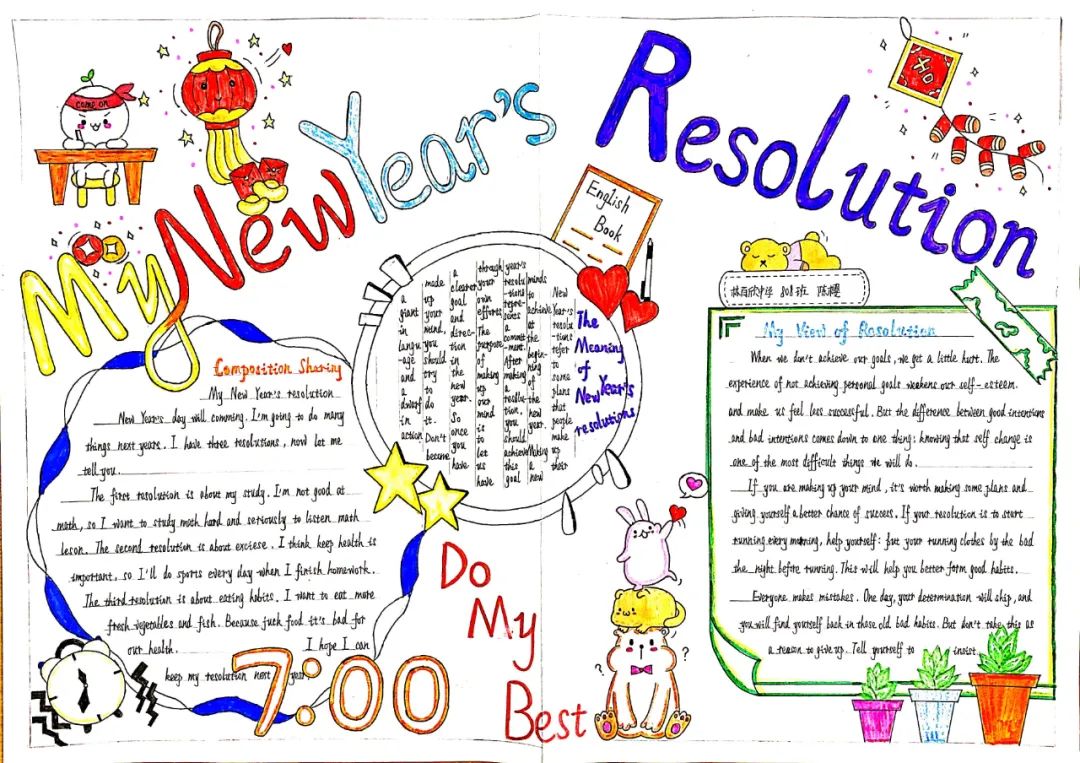 My New Year's Resolution
come on
English
Book
林百欣中学 808班
Composition Sharing
My New Year's resolution
New Year's day will comming. I'm going to do many
things next years. I have three resolutions, now let me
tell you.
The first resolution is about my study. I'm not good at
math, so I want to study much hard and seriously to listen math
leson. The second resolution is about exciese. I think keep health is
important, so I'll do sports every day when I finish homework.
The third resolution is about eating habits. I want to eat more
fresh vegetables and fish. Because juck food it's bad for
our health. I hope I can
keep my resolution next year
7:00
The
Meaning
of
New Year's
resolutions
New Year's resolu-tions refer to some plans that people make up their
minds to achieve at the begin-ning of the new year. Making a new
year's resolu-tions repre-sents a commit-ment. After making a resolu-tion, you should achieve this goal
through your own efforts. The purpose of making up our mind is to let us have
a clearer goal and direc-tion in the new year. So once you have
made up your mind, you should try to do it. Don't become
a giant in langu-age and a dwarf in action
Do
My
Best
My View of Resolution
When we don't achieve our goals, we get a little hurt. The
experience of not achieving personal goals weakens our self-esteem.
and make us feel less successful. But the difference between good intentions
and bad intentions comes down to one thing: knowing that self change is
one of the most difficult things we will do.
If you are making up your mind, it's worth making some plans and
giving yourself a better chance of success. If your resolution is to start
running every morning, help yourself: put your running clothes by the bad
the night before running. This will help you better form good habits.
Everyone makes mistakes. One day, your determination will skip, and
you will find yourself back in those old bad habits. But don't take this as
a reason to give up. Tell yourself to insist.